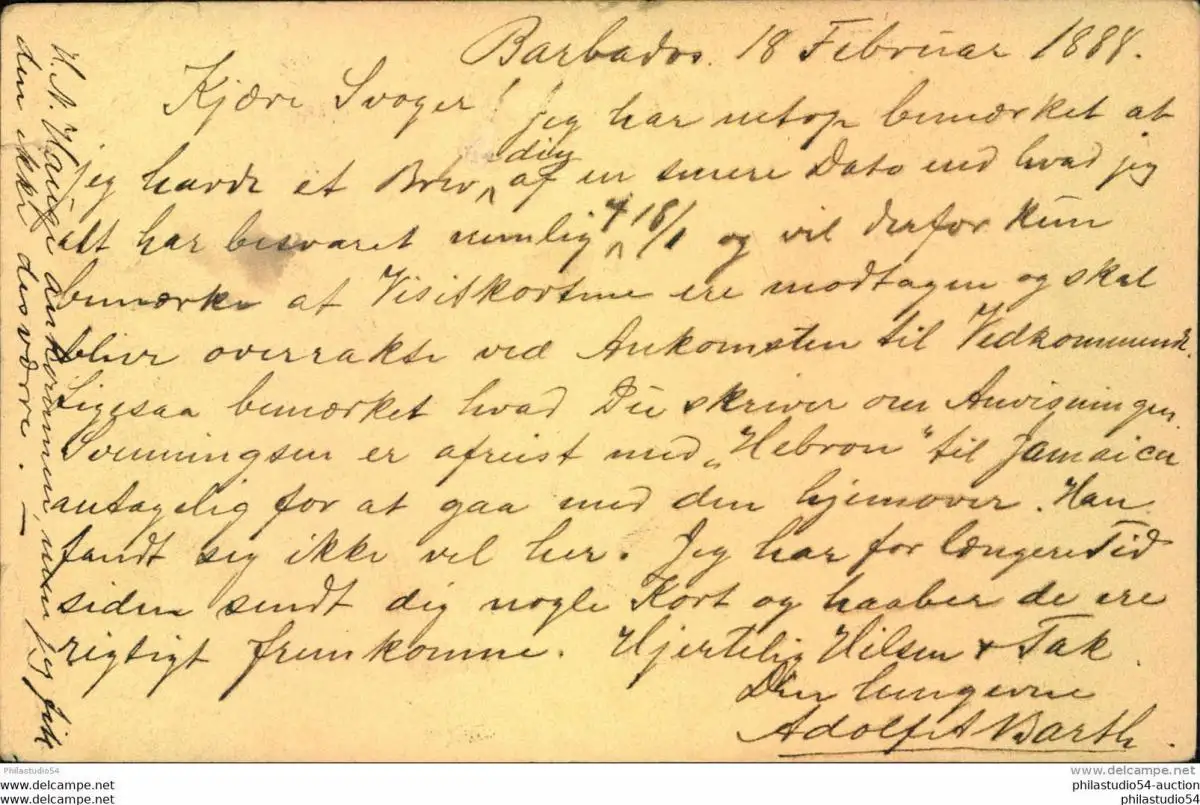 Barbados. 18 Februar 1888.
Kjære Svoger! Jeg har netop bemærket at
jeg havde et Brev dig af en senere Dato end hvad jeg
alt har besvaret nemlig 18/1 og vil derfor kun
bemærke at Visitkortene ere modtagen og skal
blive overrakte ved Ankomsten til Vedkommende.
Ligesaa bemærket hvad Du skriver om Anvisningen.
Svenningsen er afreist med „Hebron" til Jamaica
antagelig for at gaa med den hjemover. Han
fandt sig ikke vel her. Jeg har for længere Tid
siden sendt dig nogle Kort og haaber de ere
rigtigt fremkomne. Hjertelig Hilsen & Tak
Din hengivne
Adolf A Barth.
H. N. Hauge ankommen, men jeg fik
den ikke desværre. —
Philastudio54
www.delcampe.net
www.delcampe.net
www.delcampe.net
philastudio54-auction
philastudio54